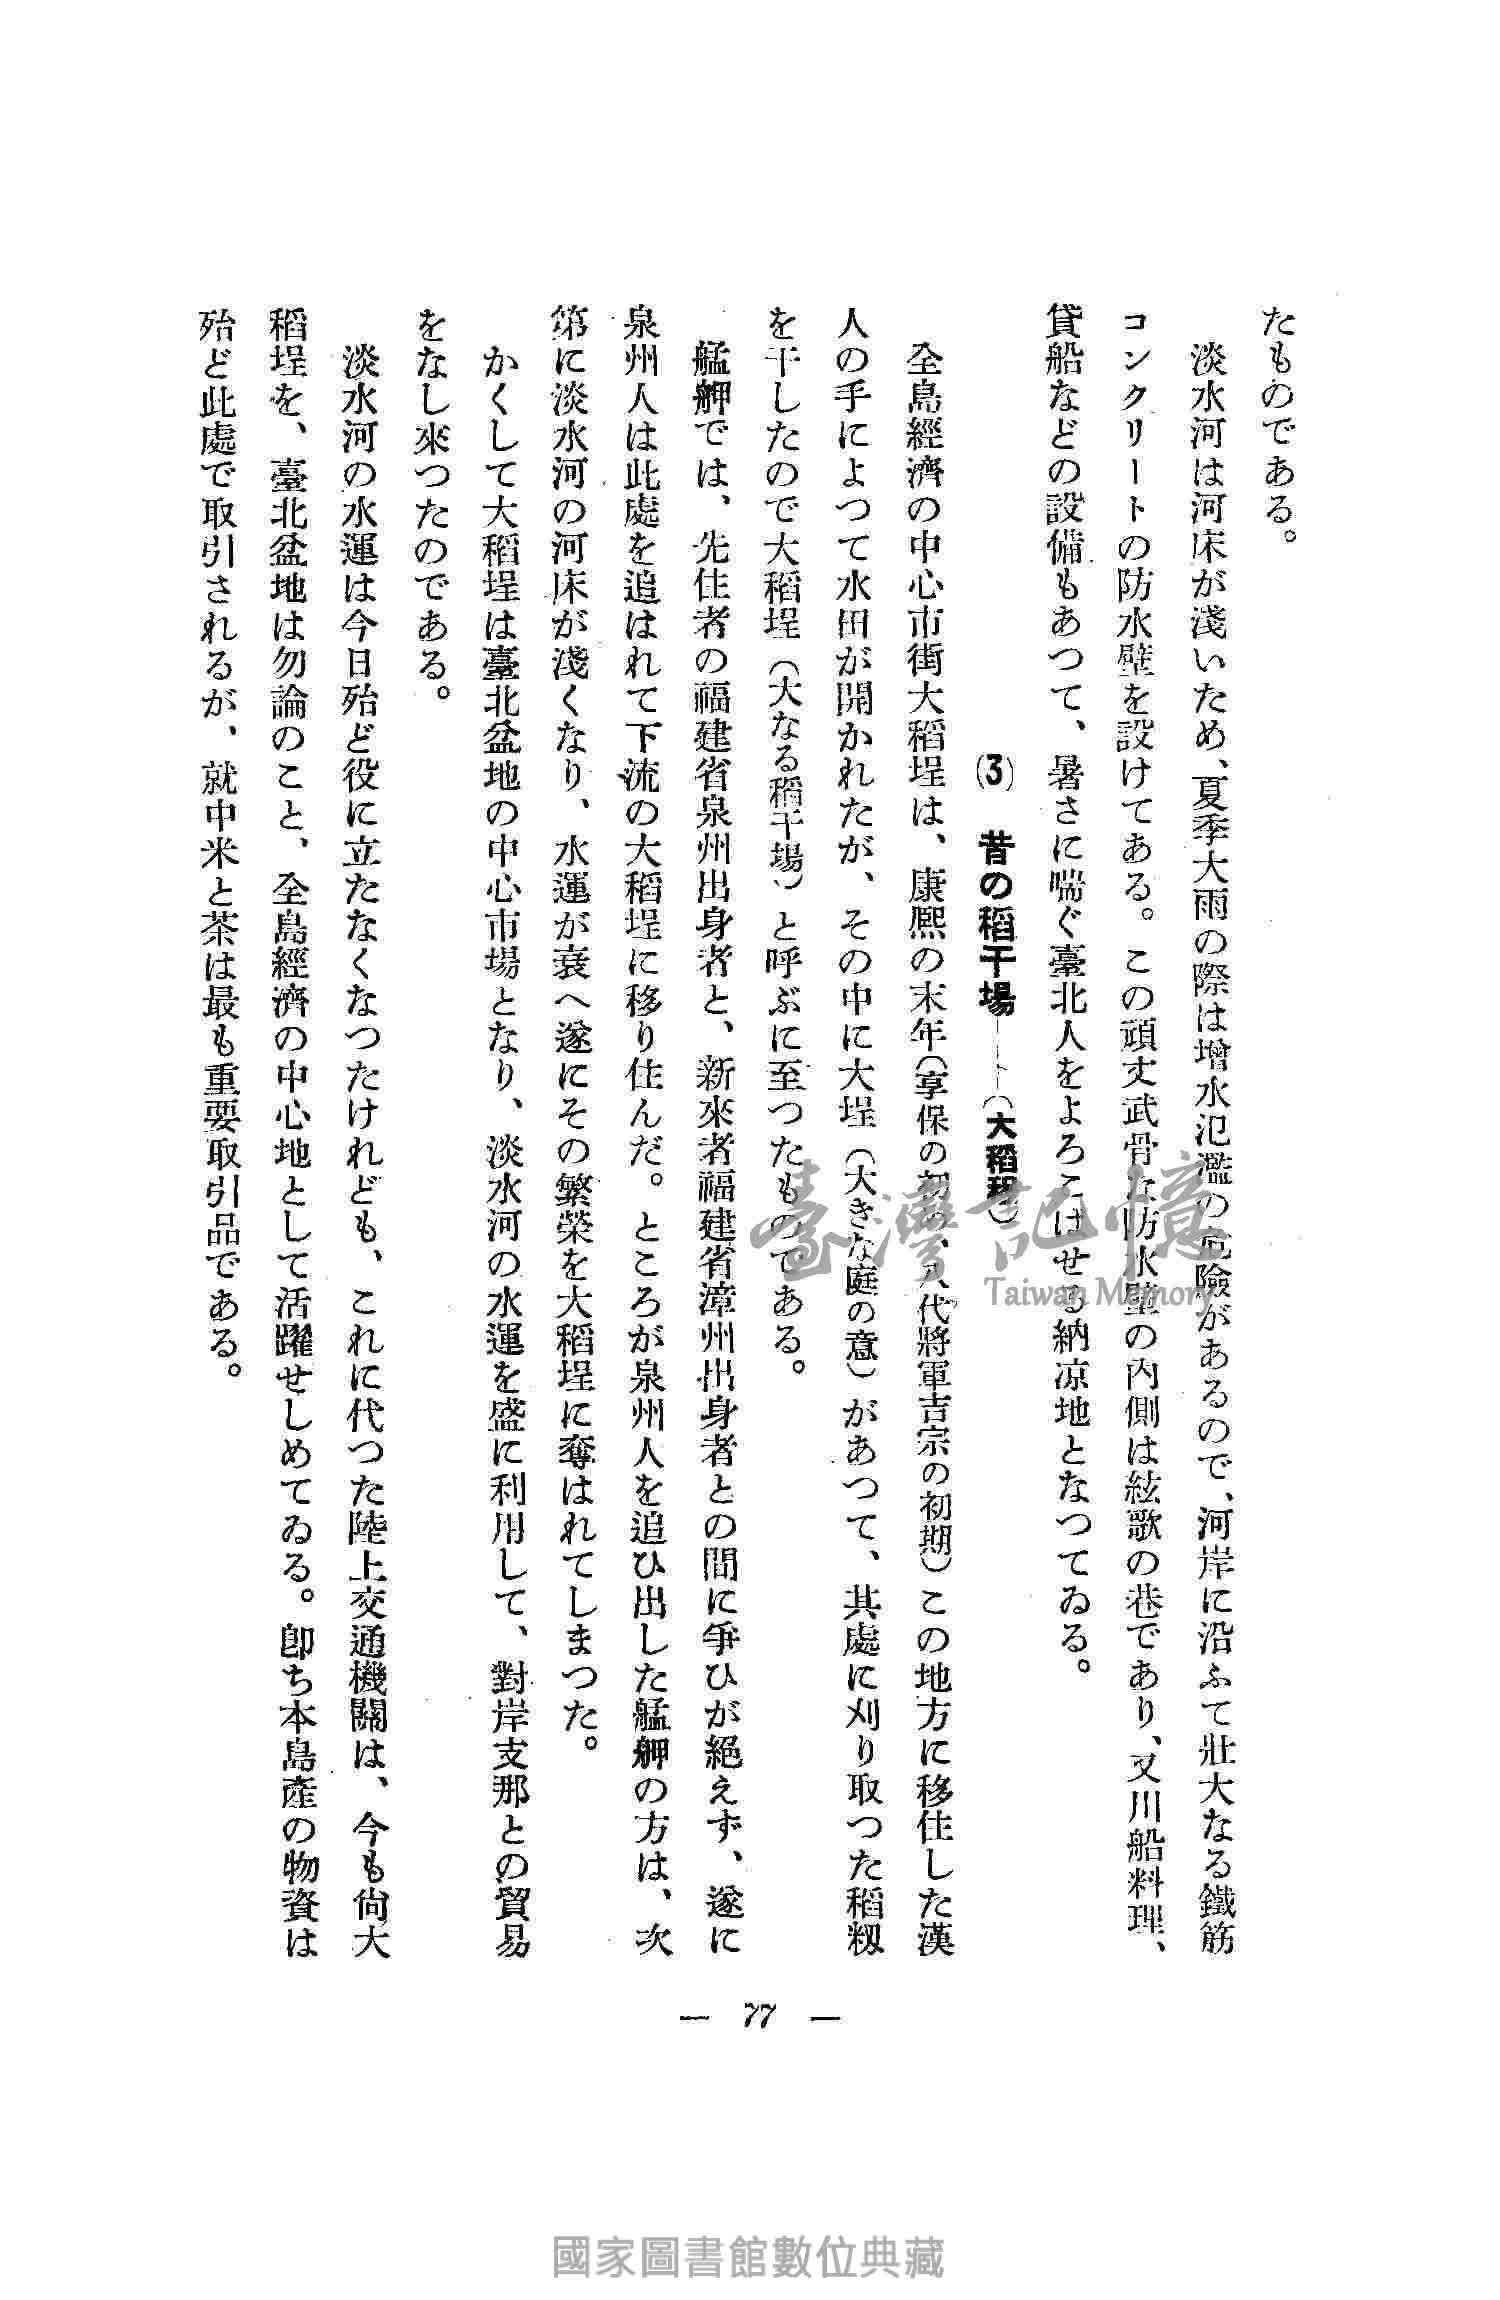 たものである。
淡水河は河床が淺いため、夏季大雨の際は增水氾濫の危險があるので、河岸に沿ふて壯大なる鐵筋
コンクリートの防水壁を設けてある。この頑丈武骨な防水壁の内側は絃歌の巷であり、又川船料理、
貸船などの設備もあつて、暑さに喘ぐ臺北人をよろこばせる納凉地となつてゐる。
(3) 昔の稻干場――(大稻埕)
全島經濟の中心市街大稻埕は、康熙の末年(享保の初め、八代將軍吉宗の初期)この地方に移住した漢
人の手によつて水田が開かれたが、その中に大埕(大きな庭の意)があつて、其處に刈り取つた稻籾
を干したので大稻埕(大なる稻干場)と呼ぶに至つたものである。
艋舺では、先住者の福建省泉州出身者と、新來者福建省漳州出身者との間に爭ひが絕えず、遂に
泉州人は此處を追はれて下流の大稻埕に移り住んだ。ところが泉州人を追ひ出した艋舺の方は、次
第に淡水河の河床が淺くなり、水運が衰へ遂にその繁榮を大稻埕に奪はれてしまつた。
かくして大稻埕は臺北盆地の中心市場となり、淡水河の水運を盛に利用して、對岸支那との貿易
をなし來つたのである。
淡水河の水運は今日殆ど役に立たなくなつたけれども、これに代つた陸上交通機關は、今も尙大
稻埕を、臺北盆地は勿論のこと、全島經濟の中心地として活躍せしめてゐる。卽ち本島產の物資は
殆ど此處で取引されるが、就中米と茶は最も重要取引品である。
— 77 —
臺灣記憶
Taiwan Memory
國家圖書館數位典藏